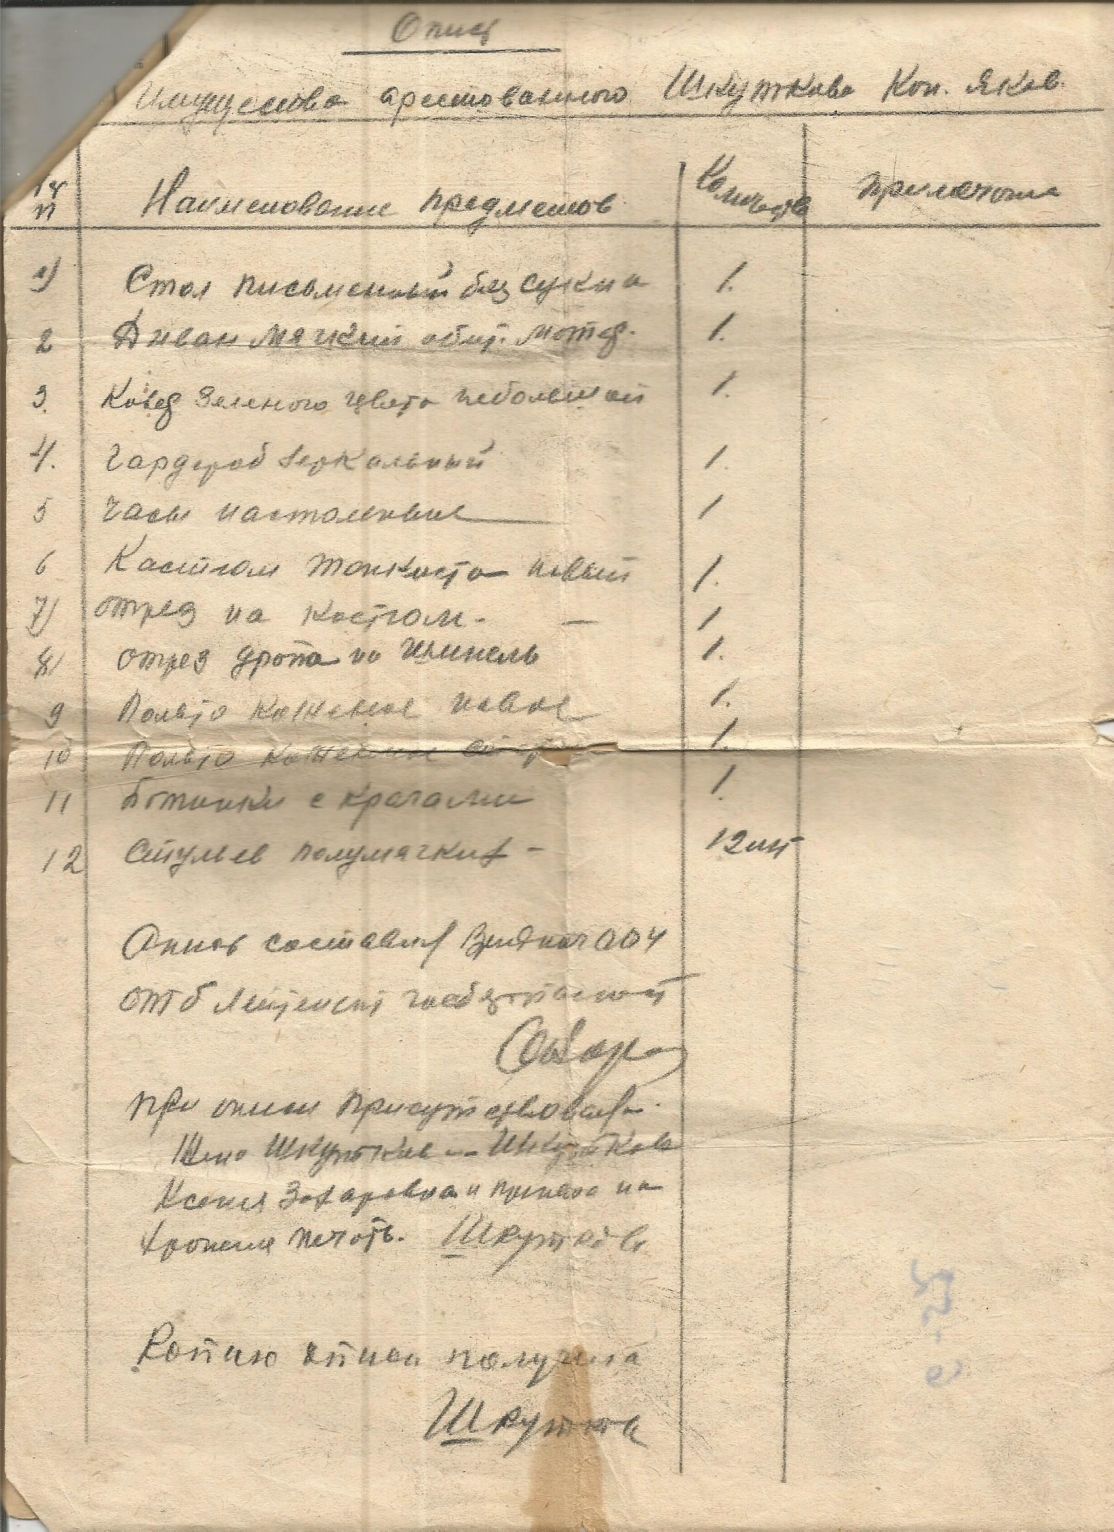 Опись
Имущества арестованного Шкуткова Кон. Яков.
№ п Наименование предметов Количеств Примечание
1) Стол письменный без сукна 1.
2 Диван мягкий обит. 1.
3. Ковер зеленого цвета небольшой 1.
4. Гардероб зеркальный 1.
5 Часы настольные 1
6 Костюм новый 1.
7) отрез на костюм. — 1
8) отрез драпа на шинель 1.
9 Пальто кожаное новое 1.
10 Пальто кожаное 1.
11 Ботинки с крагами 1.
12 Стульев полумягких - 12 шт
Опись составил
лейтенант госбезопасност
При описи присутствовала
Жена Шкуткова — Шкуткова
Ксения Захаровна и принела на
хронение печать. Шкуткова
Копию описи получила
Шкуткова